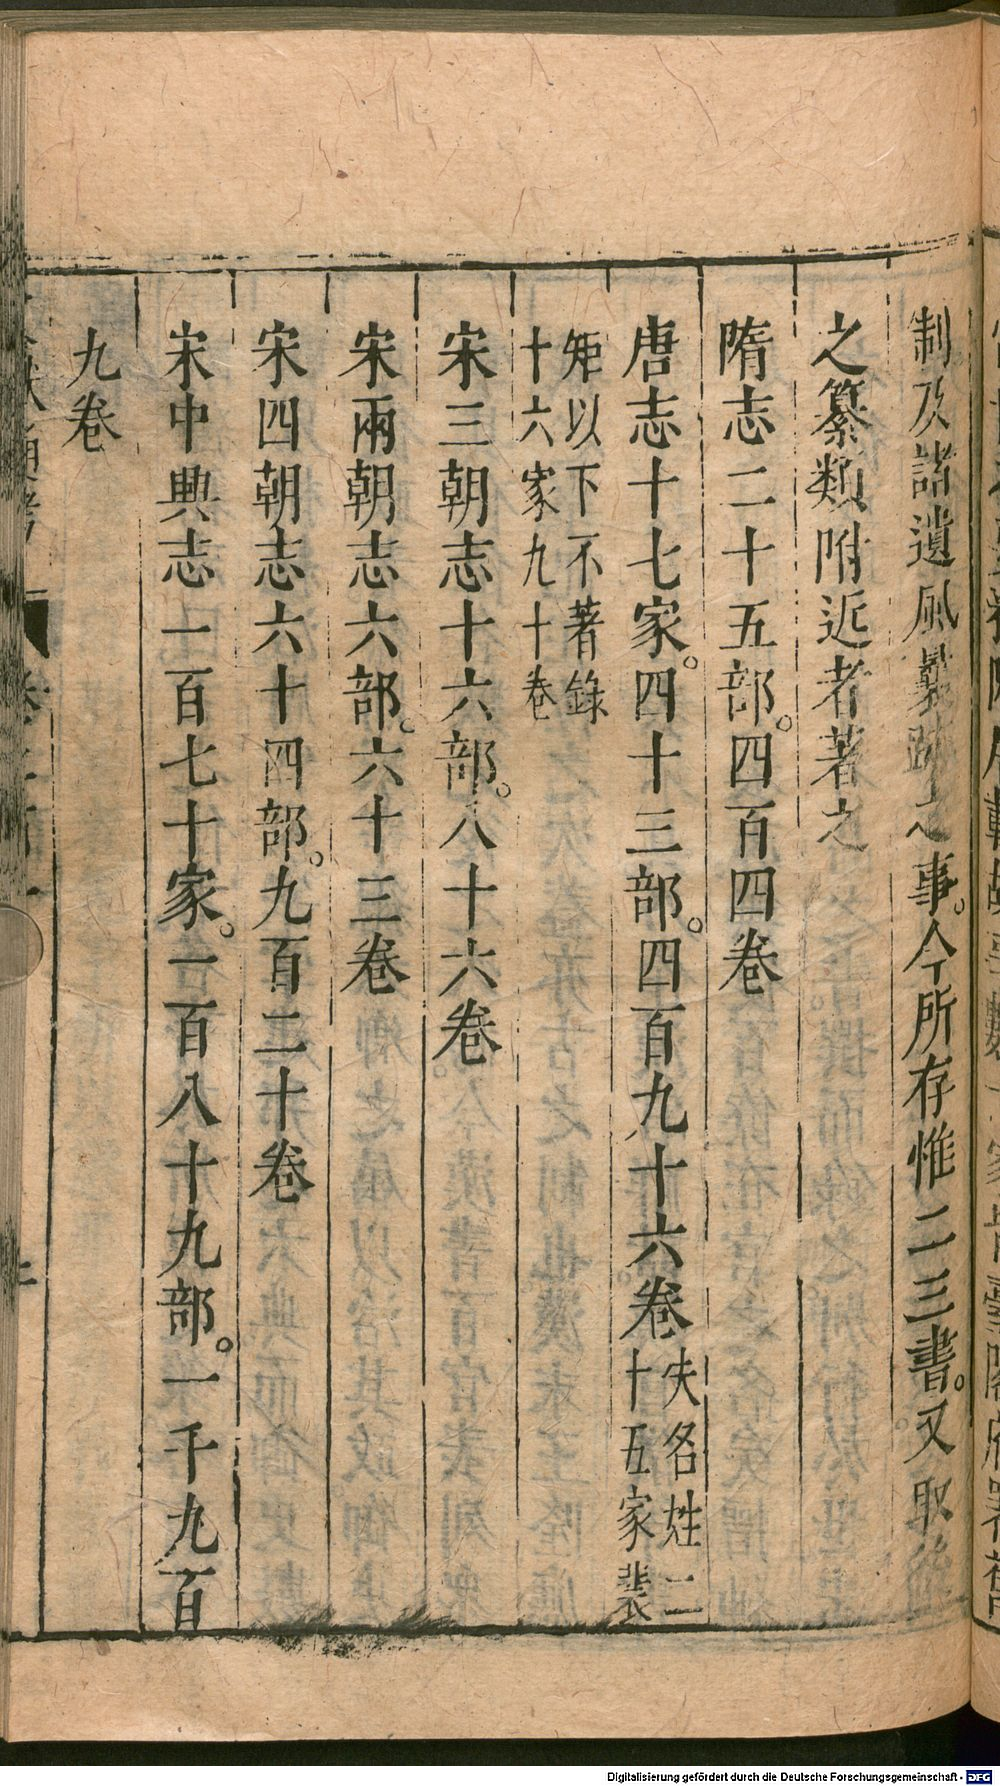 制及諸遺風曩跡之事。今所存惟二三書。又取
之纂類附近者著之
隋志二十五部。四百四卷
唐志十七家。四十三部。四百九十六卷
失名姓二
十五家裴
矩以下不著錄
十六家九十卷
宋三朝志十六部。八十六卷。
宋兩朝志六部。六十三卷
宋四朝志六十四部。九百二十卷
宋中興志一百七十家。一百八十九部。一千九百
九卷
Digitalisierung gefördert durch die Deutsche Forschungsgemeinschaft - DFG